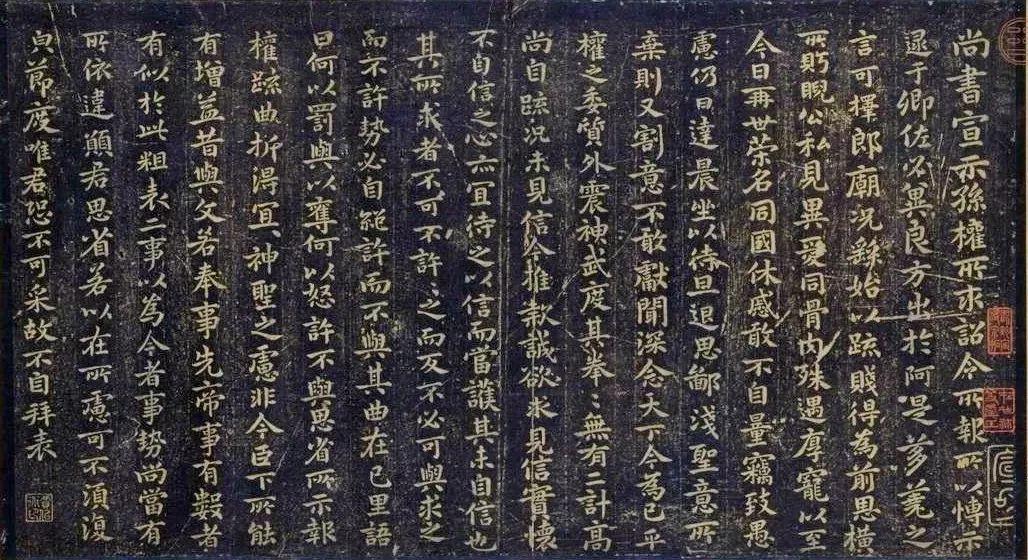 尚書宣示孫權所求詔令所報所以博示
逮于卿佐必冀良方出於阿是芻蕘之
言可擇郎廟況繇始以疏賤得為前恩橫
所眄睨公私見異愛同骨肉殊遇厚寵以至
今日再世榮名同國休慼敢不自量竊致愚
慮仍日達晨坐以待旦退思鄙淺聖意所
棄則又割意不敢獻聞深念天下今為已平
權之委質外震神武度其拳〻無有二計高
尚自疏況未見信今推款誠欲求見信實懷
不自信之心亦宜待之以信而當護其未自信也
其所求者不可不許〻之而反不必可與求之
而不許勢必自絕許而不與其曲在己里語
曰何以罰與以奪何以怒許不與思省所示報
權疏曲折得宜〻神聖之慮非今臣下所能
有增益昔與文若奉事先帝事有數者
有似於此粗表二事以為今者事勢尚當有
所依違願君思省若以在所慮可不須復
貞節度唯君恐不可采故不自拜表